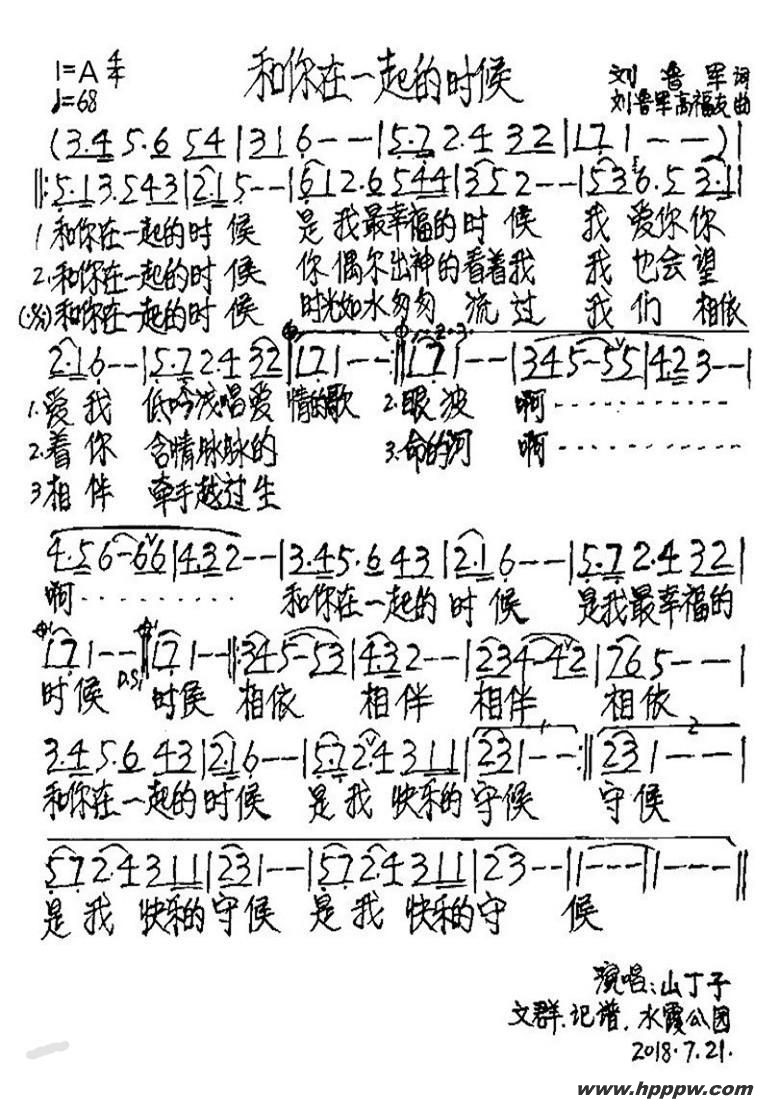 1=A 4/4
♩=68
和你在一起的时候
刘鲁军词
刘鲁军高福友曲
(3·4 5·6 54|31 6--|5·7 2·4 32|17 1--)|
‖:5·1 3·5 43|21 5--|61 2·6 544|35 2--|53 6·5 3·1|
1 和你在一起的时候 是我最幸福的时候 我爱你你
2.和你在一起的时候 你偶尔出神的看着我 我也会望
和你在一起的时候 时光如水匆匆流过 我们相依
2·1 6--|5·7 2·4 32‖17 1--:‖17 1--|345-55|423--|
1.爱我 低吟浅唱爱情的歌 2.眼波 啊----------
2.着你 含情脉脉的 3.命的河 啊----------
3相伴 牵手越过生
4·56-66|432--|3·45·6 43|2·1 6--|5·7 2·4 32|
啊········ 和你在一起的时候 是我最幸福的
17 1--‖17 1--‖:345-53|432--|234-42|765--|
时候 D.S. 时侯 相依 相伴 相伴 相依
3·4 5·6 43|21 6--|572·4 311|231--:‖231--|
和你在一起的时候 是我快乐的守候 守候
572·4 311|231--|572·4 311|23--|1---|1---‖
是我快乐的守候 是我快乐的守 候
演唱:山丁子
文群.记谱.水霞公园
2018.7.21.
www.hpppw.com